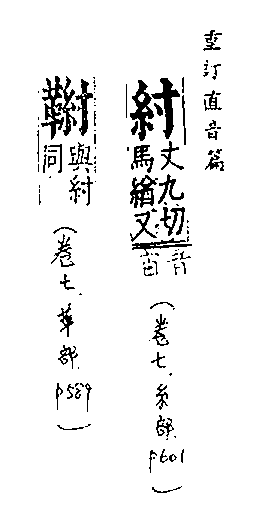 重訂直音篇
紂
丈九切
馬緧又
音
宙
(卷七、糸部 p601)
與紂
同
(卷七、革部 p589)